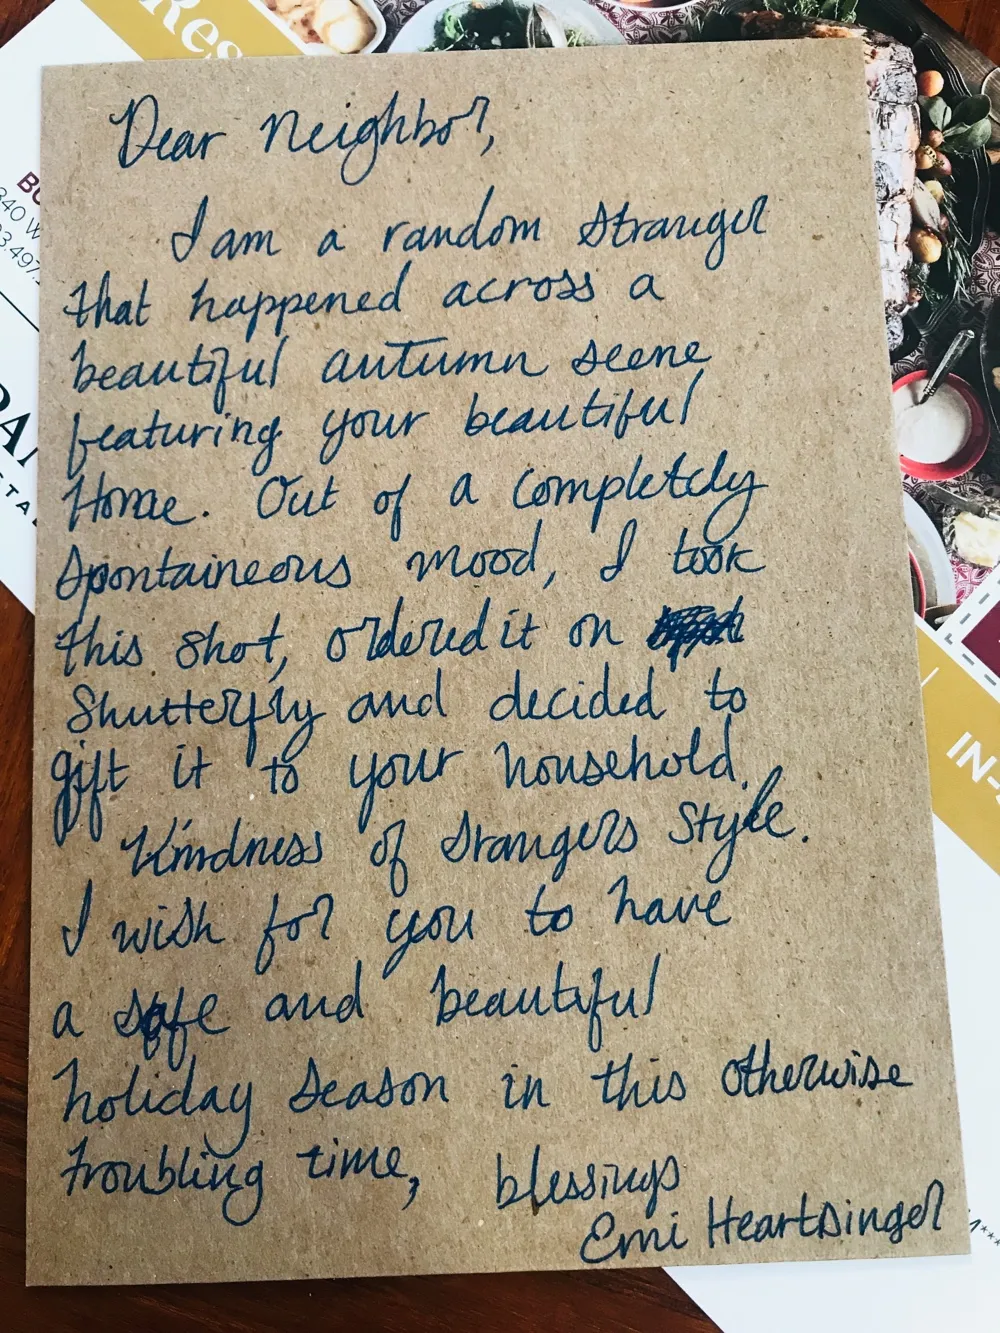 Res
BO
340 W
3.497.
DA
ETA
IN-
Dear Neighbor,
I am a random stranger
that happened across a
beautiful autumn scene
featuring your beautiful
Home. Out of a completely
spontaineous mood, I took
this shot, ordered it on
Shutterfly and decided to
gift it to your household.
Kindness of strangers style.
I wish for you to have
a safe and beautiful
holiday season in this otherwise
troubling time, blessings
Emi Heartsinger